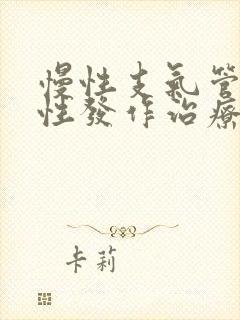 慢性支氣管
性發作治療
卡莉